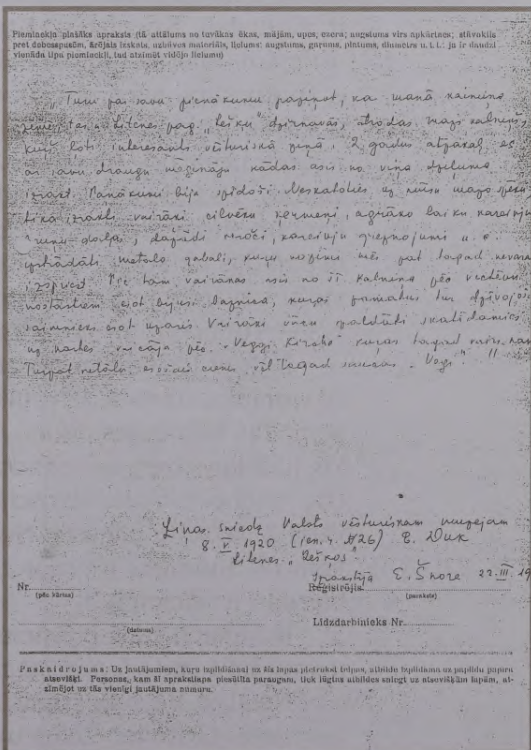 Pieminekļa plašāks apraksts (tā attālums no tuvākas ēkas, mājām, upes, ezera; augstums virs apkārtnes; stāvoklis
pret debesspusēm, ārējais izskats, uzbūves materiāls, lielums: augstums, garums, platums, diametrs u. t. t.; ja ir daudzi
vienāda tipa pieminekļi, tad atzīmēt vidējo lielumu)
„Turu par savu pienākumu paziņot, ka manā kaimiņa
zemē, tas ir Litenes pag. „Leišku" dzirnavās, atrodas mazs kalniņš,
kurš ļoti interesants vēsturiskā ziņā. 2 gadus atpakaļ es
ar savu draugu mēģināju kādas asis no viņa dziļuma
izrakt. Panākumi bija spīdoši. Neskatoties uz mūsu mazo spēku
tika izrakti vairāki cilvēku ķermeņi, agrāko laiku kareivju
dažādi ieroči, kareivju greznojumi u. c.
izstrādāti metala gabali, kuru nozīmi mēs pat tagad nevaram
izprast. Pie tam vairākas asis no šī kalniņa pēc vectēvu
nostāstiem esot bijusi baznīca, kuras pamatus tur dzīvojošais
saimnieks esot uzaris. Vairāki vācu zaldāti skatīdamies
uz kartes vaicāja pēc „Veggi Kirche" kuras tagad vairs nav.
Turpat netālu esošais ciems vēl tagad saucas „Vegi". "
Ziņas sniedz Valsts vēsturiskam muzejam
8. V. 1920 (ien. ž. №26) E. Duk
Litenes „Leškos"
Nr.
(pēc kārtas)
Izrakstīja E. Šnore 22. III. 19
Reģistrējis
(paraksts)
(datums)
Līdzdarbinieks Nr.
Paskaidrojums: Uz jautājumiem, kuru izpildīšanai uz šīs lapas pietrūkst telpas, atbildu izpildāma uz papildu papīra
atsevišķi. Personas, kam šī aprakstlapa piesūtīta paraugam, tiek lūgtas atbildes sniegt uz atsevišķām lapām, at-
zīmējot uz tās vienīgi jautājuma numuru.